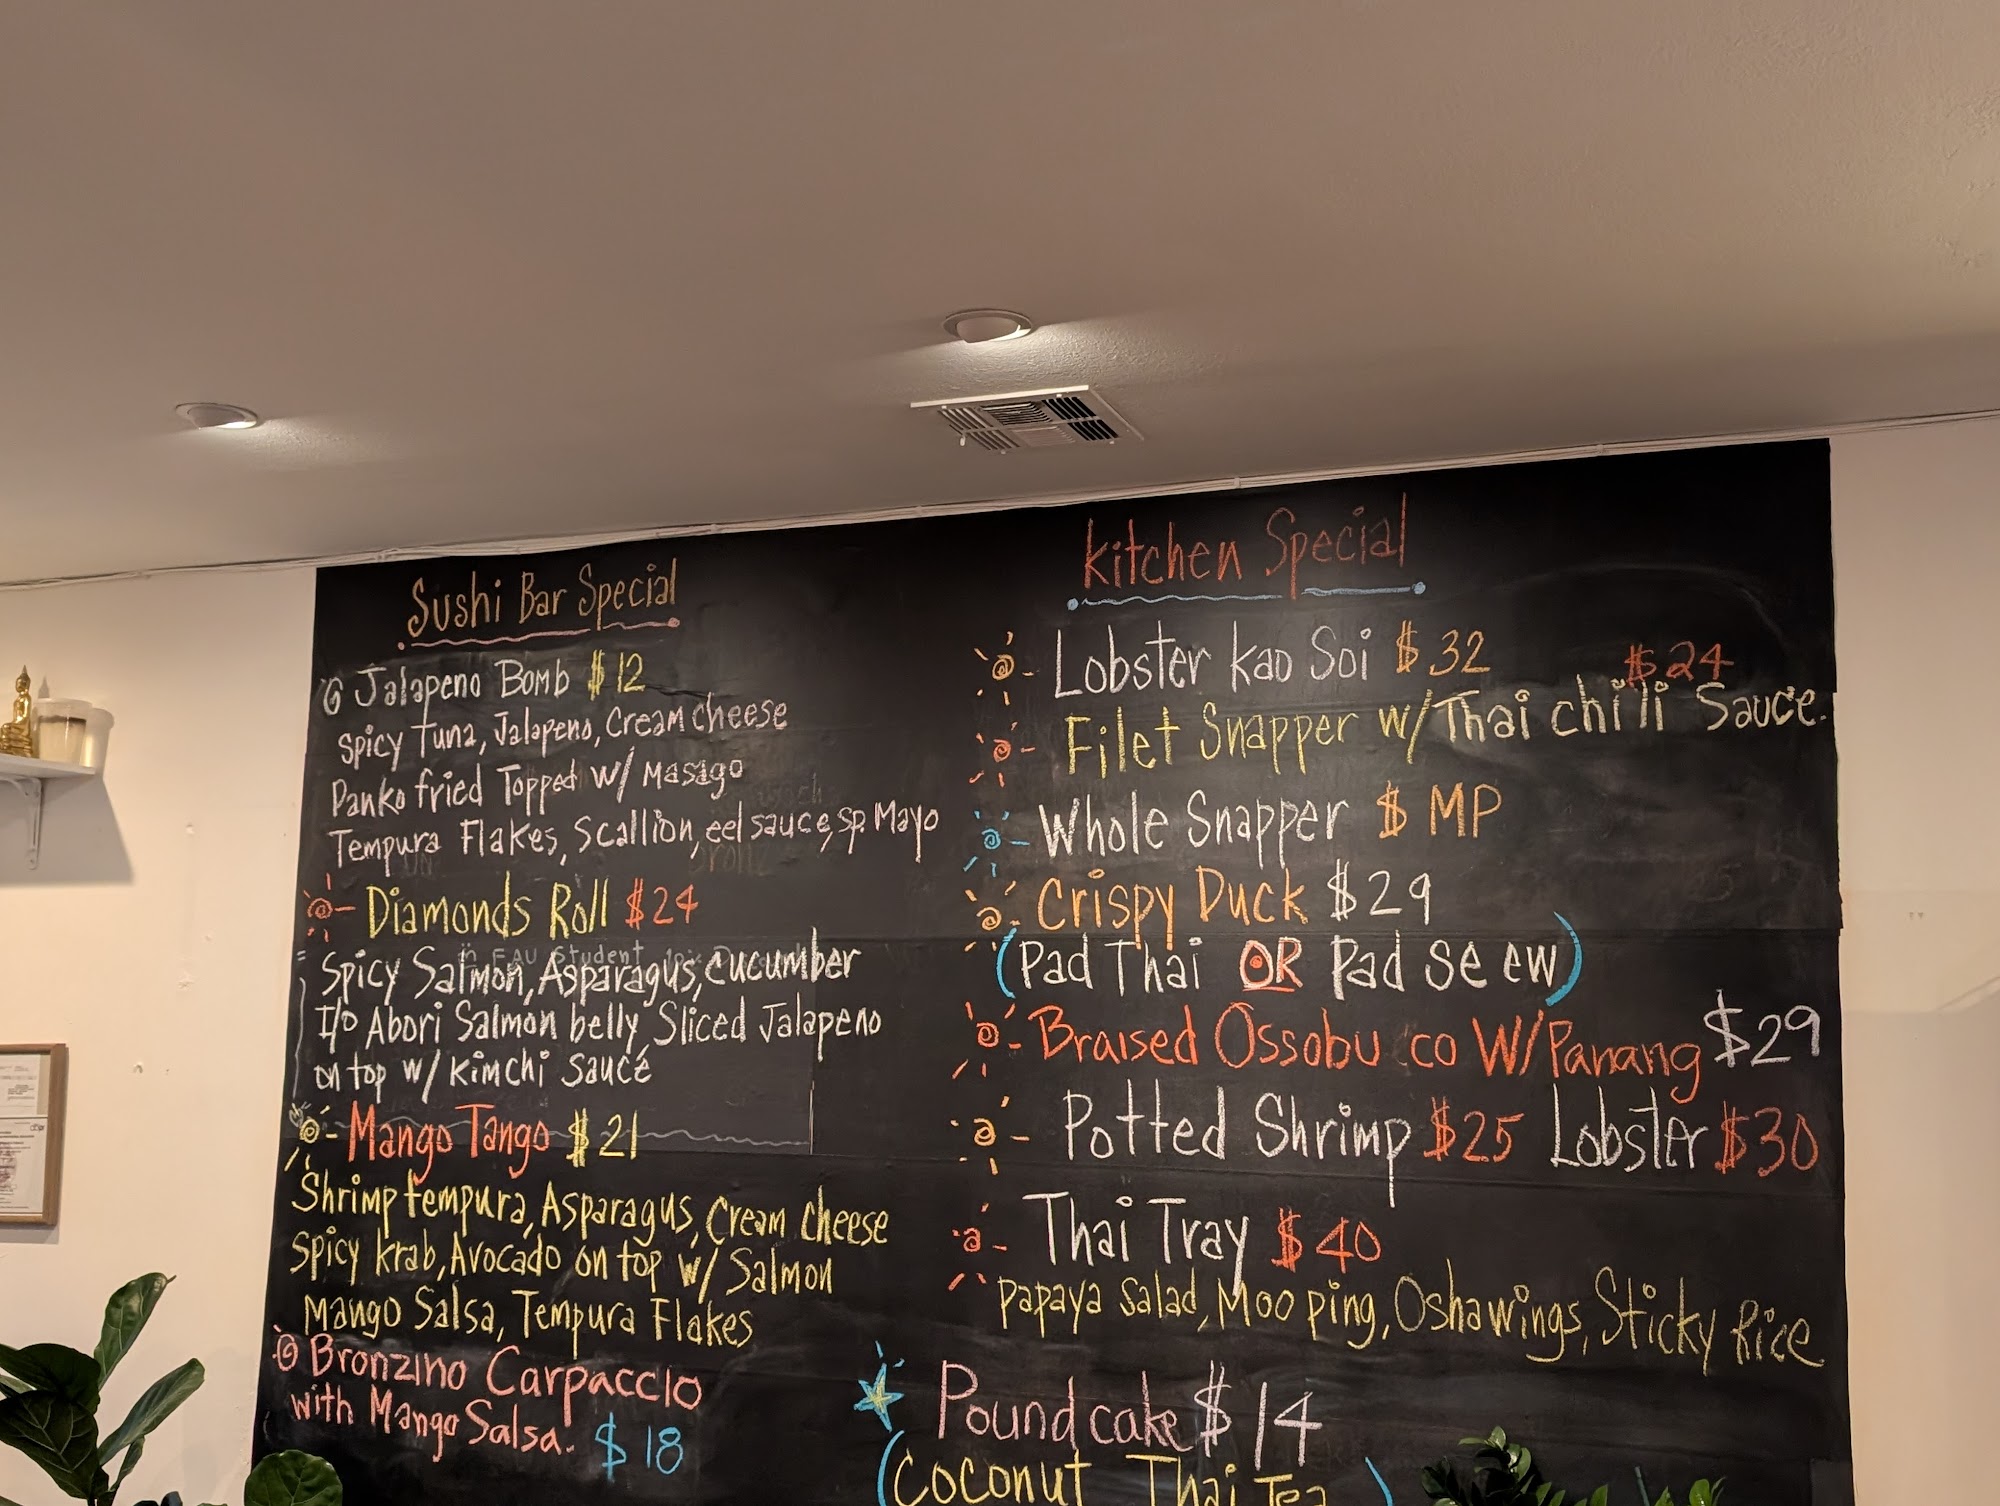 Sushi Bar Special
Jalapeno Bomb $12
Spicy Tuna, Jalapeno, Cream cheese
Panko fried Topped w/ Masago
Tempura Flakes, Scallion, eel sauce, sp. Mayo
Diamonds Roll $24
FAU Student 10%
Spicy Salmon, Asparagus, cucumber
I/o Abori Salmon belly, Sliced Jalapeno
on top w/ Kimchi Sauce
Mango Tango $21
Shrimp tempura, Asparagus, Cream cheese
Spicy krab, Avocado on top w/ Salmon
Mango Salsa, Tempura Flakes
Bronzino Carpaccio
with Mango Salsa. $18
Kitchen Special
Lobster Kao Soi $32
$24
Filet Snapper w/ Thai chili Sauce.
Whole Snapper $ MP
Crispy Duck $29
(Pad Thai OR Pad se ew)
Braised Ossobu co W/Panang $29
Potted Shrimp $25 Lobster $30
Thai Tray $40
Papaya Salad, Moo ping, Osha wings, Sticky Rice
Pound cake $14
(Coconut Thai Tea)